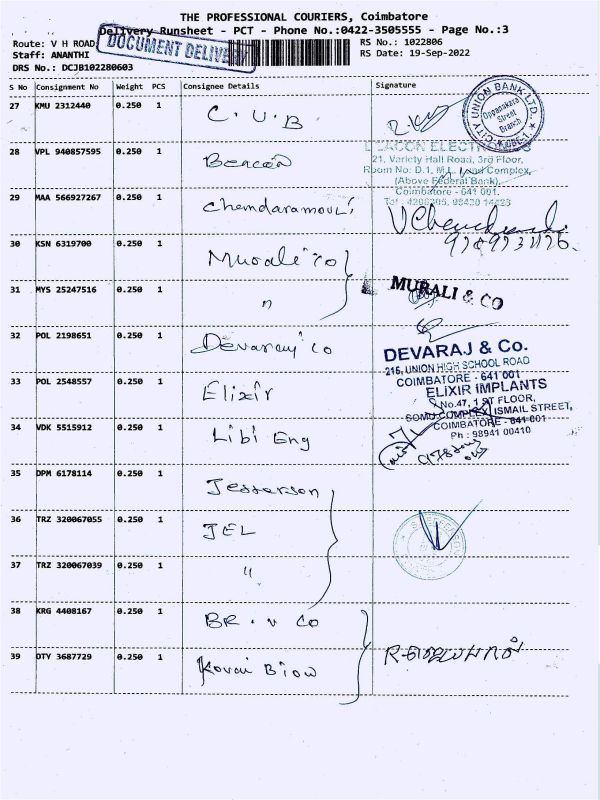 THE PROFESSIONAL COURIERS, Coimbatore
Delivery Runsheet - PCT - Phone No.:0422-3505555 - Page No.:3
Route: V H ROAD
DOCUMENT DELIVERY
RS No.: 1022806
Staff: ANANTHI
RS Date: 19-Sep-2022
DRS No.: DCJB102280603
S No Consignment No Weight PCS Consignee Details Signature
27 KMU 2312440 0.250 1 C.U.B
CITY UNION BANK LTD.
Oppanakara Street Branch
28 VPL 940857595 0.250 1 Beacon
BEACON ELECTRICALS
21, Variety Hall Road, 3rd Floor,
Room No: D.1, M.L. Complex,
(Above Federal Bank),
Coimbatore - 641 001.
29 MAA 566927267 0.250 1 Chandaramouli
30 KSN 6319700 0.250 1 Murali Co
31 MYS 25247516 0.250 1 "
MURALI & CO
32 POL 2198651 0.250 1 Devaraj Co
DEVARAJ & Co.
216, UNION HIGH SCHOOL ROAD
COIMBATORE - 641 001
33 POL 2548557 0.250 1 Elixir
ELIXIR IMPLANTS
No.47, 1 ST FLOOR,
SOMU COMPLEX, ISMAIL STREET,
COIMBATORE - 641 001
Ph : 98941 00410
34 VDK 5515912 0.250 1 Libi Eng
35 DPM 6178114 0.250 1 Jesserson
36 TRZ 320067055 0.250 1 JEL
37 TRZ 320067039 0.250 1 "
38 KRG 4408167 0.250 1 BR. V Co
39 DTY 3687729 0.250 1 Kovai Biow